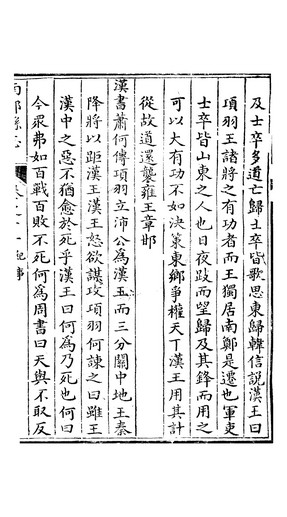 及士卒多道亡歸士卒皆歌思東歸韓信說漢王曰
項羽王諸將之有功者而王獨居南鄭是遷也軍吏
士卒皆山東之人也日夜跂而望歸及其鋒而用之
可以大有功不如決策東鄉爭權天丁漢王用其計
從故道還襲雍王章邯
漢書蕭何傳項羽立沛公為漢王而三分關中地王秦
降將以距漢王漢王怒欲謀攻項羽何諫之曰雖王
漢中之惡不猶愈於死乎漢王曰何為乃死也何曰
今眾弗如百戰百敗不死何為周書曰天與不取反
南鄭縣志 卷之 紀事